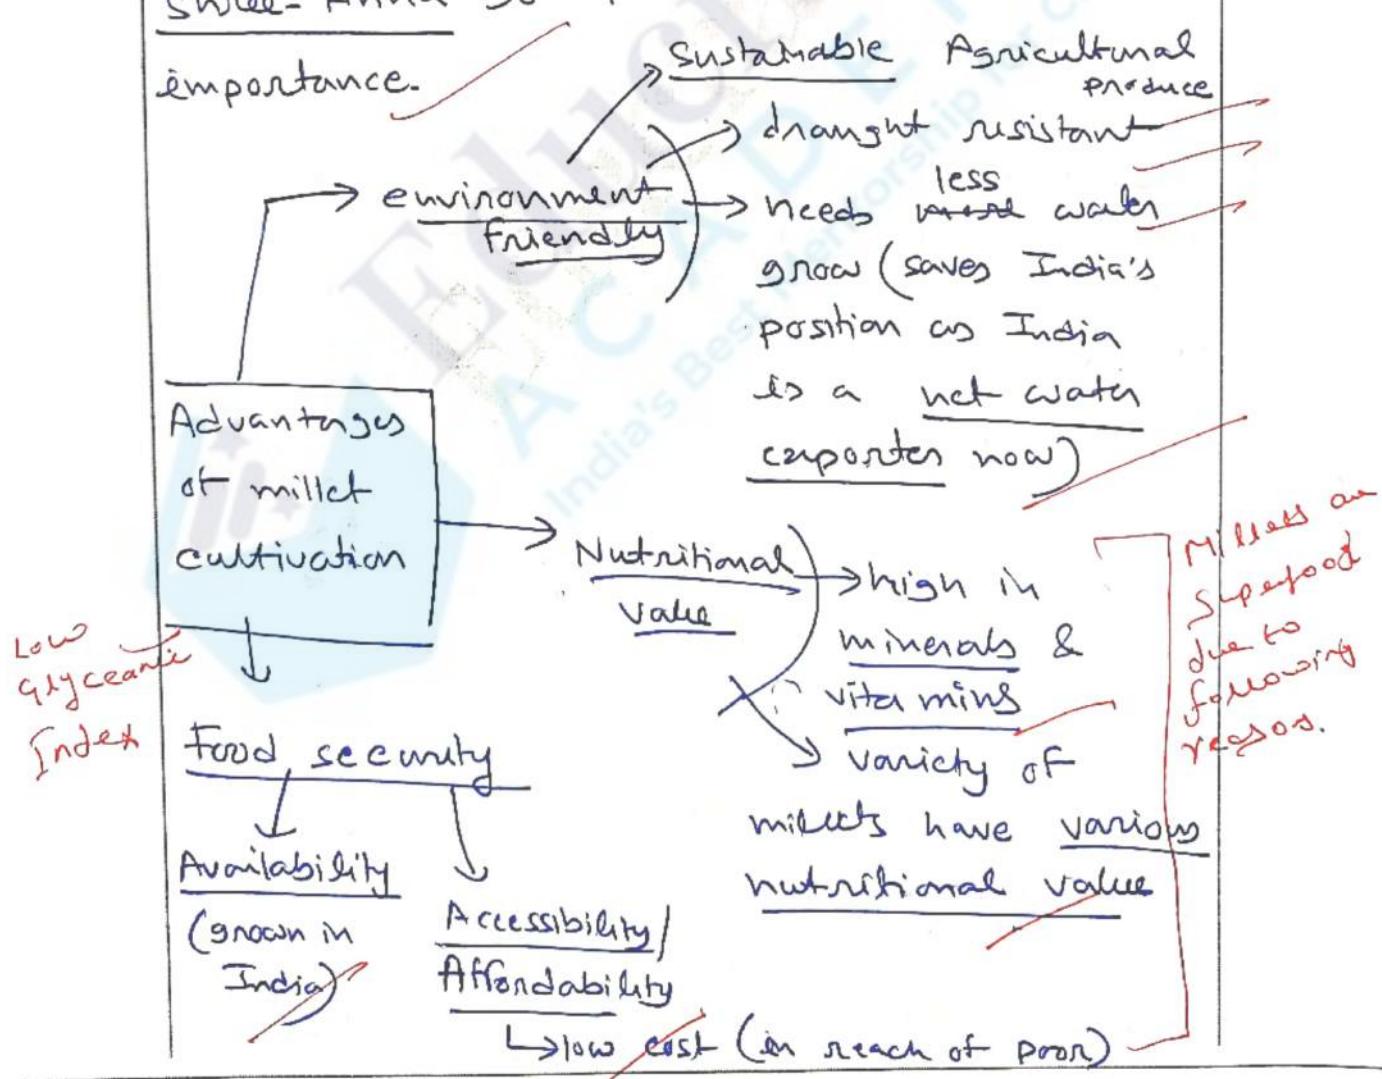 importance.
Sustainable Agricultural
produce
draught resistant
less
needs water
environment
friendly
grow (saves India's
position as India
is a net water
exporter now)
Advantages
of millet
cultivation
Nutritional
value
high in
minerals &
vitamins
variety of
millets have various
nutritional value
Millets are
Superfood
due to
following
reasos.
Low
Glyceamic
Index
Food security
Availability
(grown in
India)
Accessibility/
Affordability
low cost (in reach of poor)
Educ
ACADE
India's Best Mentorship for C